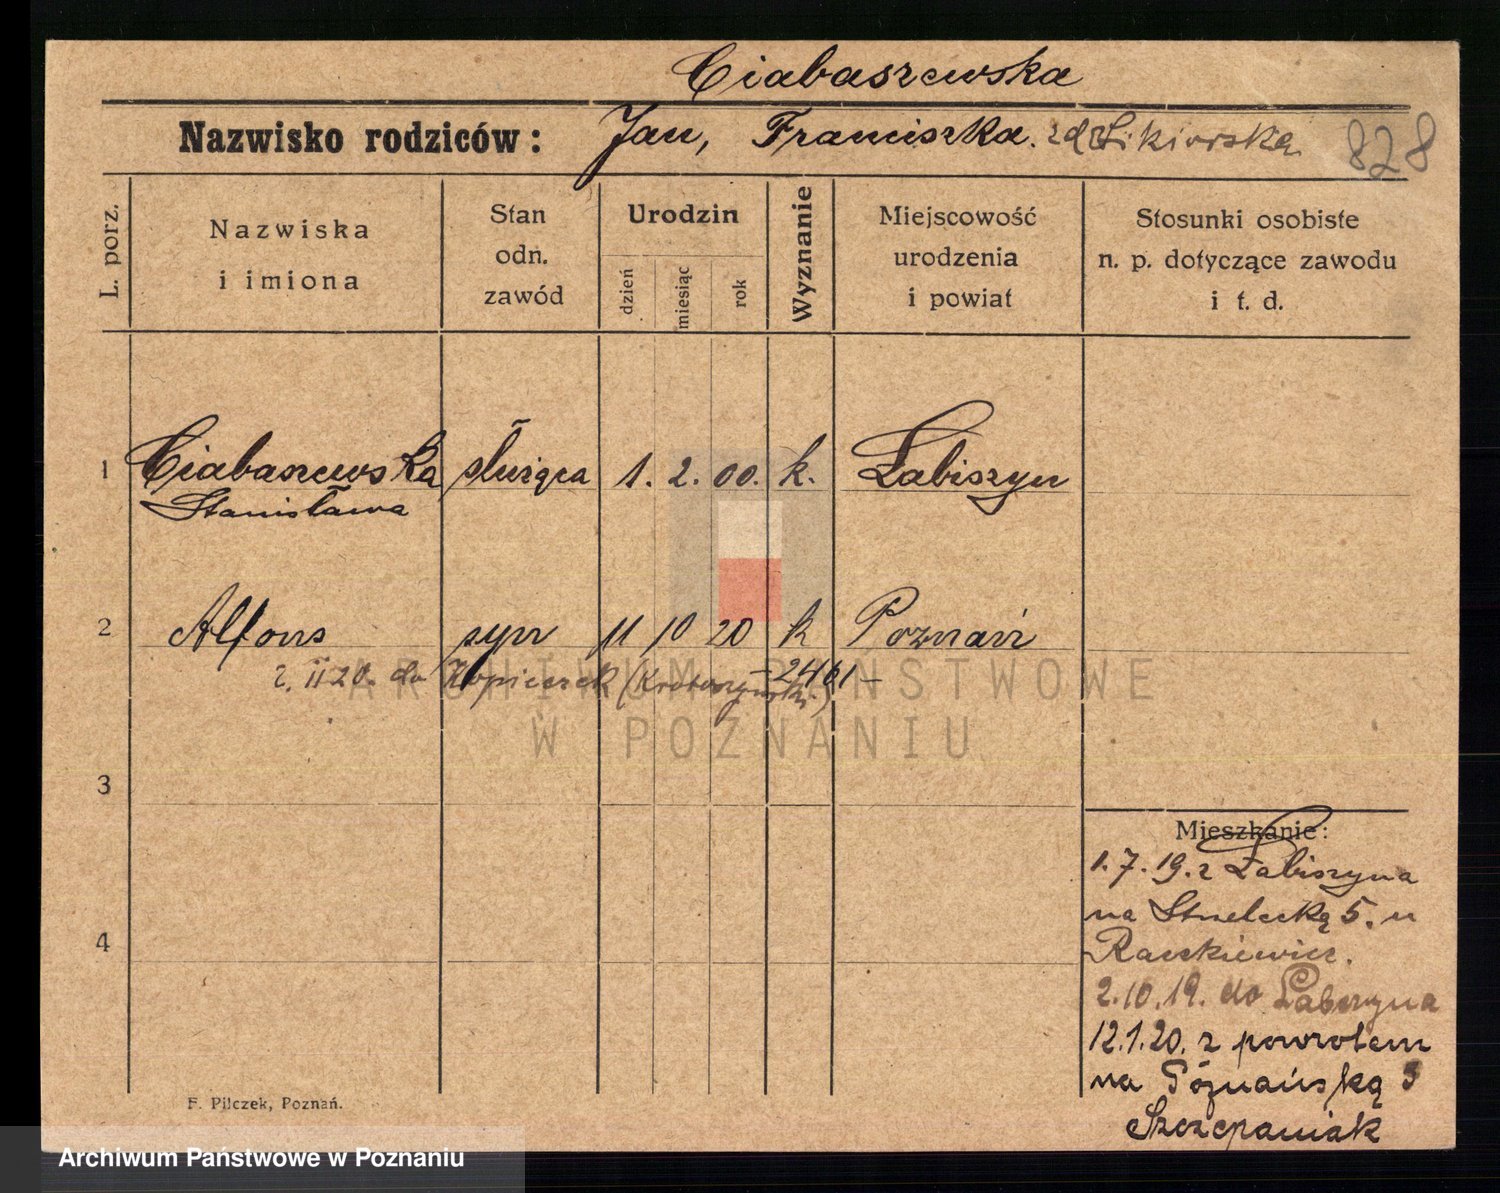 Ciabaszewska
Nazwisko rodziców: Jan, Franciszka. 828
L. porz.
Nazwiska
i imiona
Stan
odn.
zawód
Urodzin
dzień
miesiąc
rok
Wyznanie
Miejscowość
urodzenia
i powiat
Stosunki osobiste
n. p. dotyczące zawodu
i t. d.
1 Ciabaszewska służąca 1. 2. 00. k. Łabiszyn
Stanisława
2 Alfons syn 11 10 20 k Poznań
2. II 20. do (Krotoszyński) - 2461 -
ARCHIWUM PAŃSTWOWE
W POZNANIU
3
4
Mieszkanie:
1.7.19. z Łabiszyna
na Strzelecką 5. u
Raczkiewicz.
2.10.19. do Łabiszyna
12.1.20. z powrotem
na Poznańską
Szczepaniak
F. Pilczek, Poznań.
Archiwum Państwowe w Poznaniu